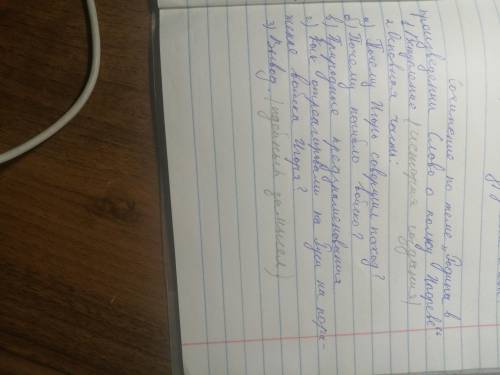 Сочинение по теме „Родина в
произведении Слово о полку Игореве“
1) Вступление (история создания)
2 Основная часть.
а) Почему Игорь совершил поход?
б) Почему погибло войско?
в) Природные предзнаменования
г) Как отреагировали на Руси на пора-
жение войска Игоря?
3) Вывод. (идейный замысел)